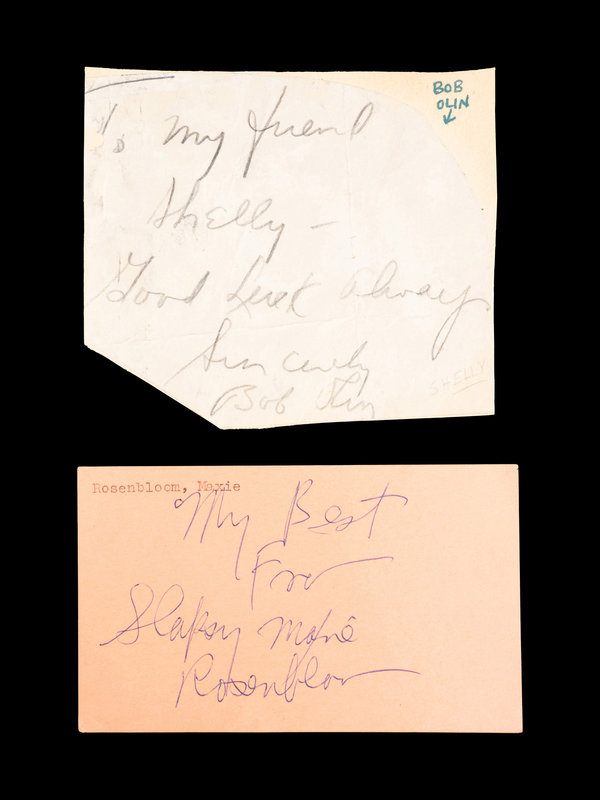 BOB
OLIN
To my friend
Shelly -
Good Luck Always
Sincerely
Bob Olin
SHELLY
Rosenbloom, Maxie
My Best
From
Slapsy Maxie
Rosenbloom